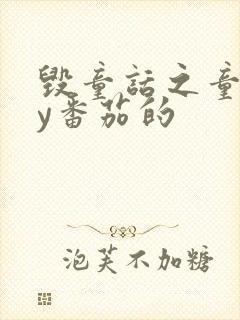 毁童话之童
y番茄的
泡芙不加糖